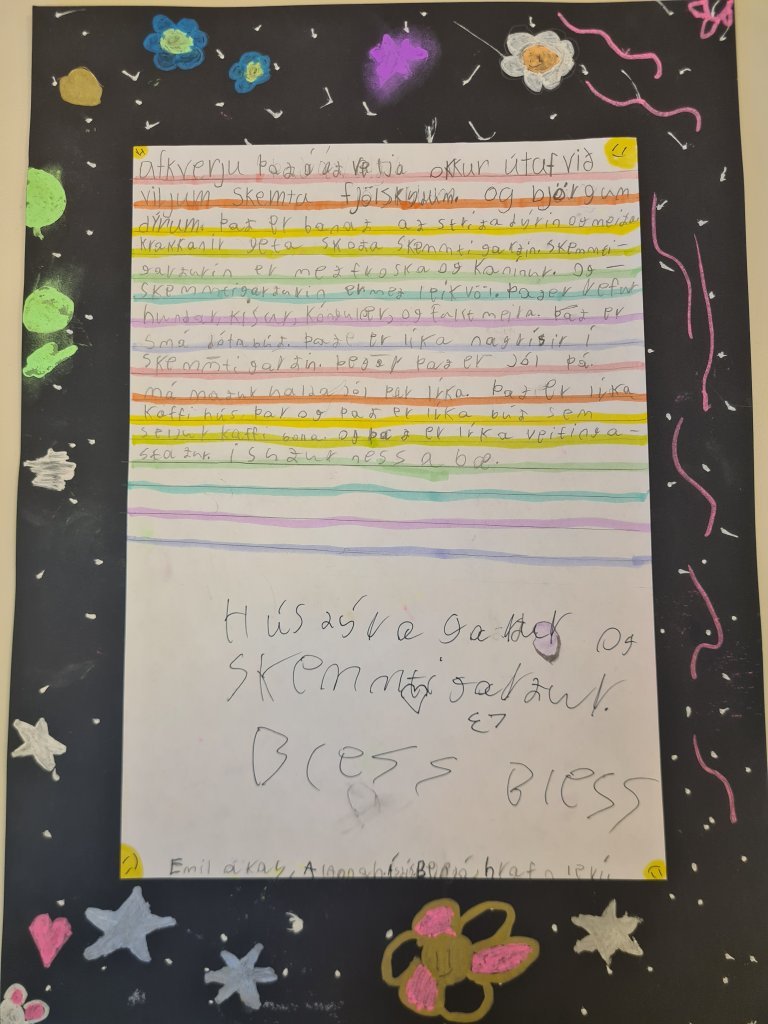 afkverju það á að velja okkur útaf við
viljum skemta fjölskyldum. og björgum
dýrum. það er banað að stríða dýrin og meiða
krakkanir geta skoða skemmti garðin. skemmti-
garðurin er með froska og kaninur. og
skemmtigarðurin er með leikvöl. það er refur
hundar, kisur, köngulær, og fullt meila. það er
smá dótabúð. það er líka nagrísir í
skemmti garðin. þegar það er jól þá
má maður halda jól þar líka. það er líka
kaffi hús þar og það er líka búð sem
selur kaffi bona. og það er líka veitinga-
staður. ísbúður ness a bæ.
Húsdýra garður og
skemmti garður.
Bless Bless
Emil